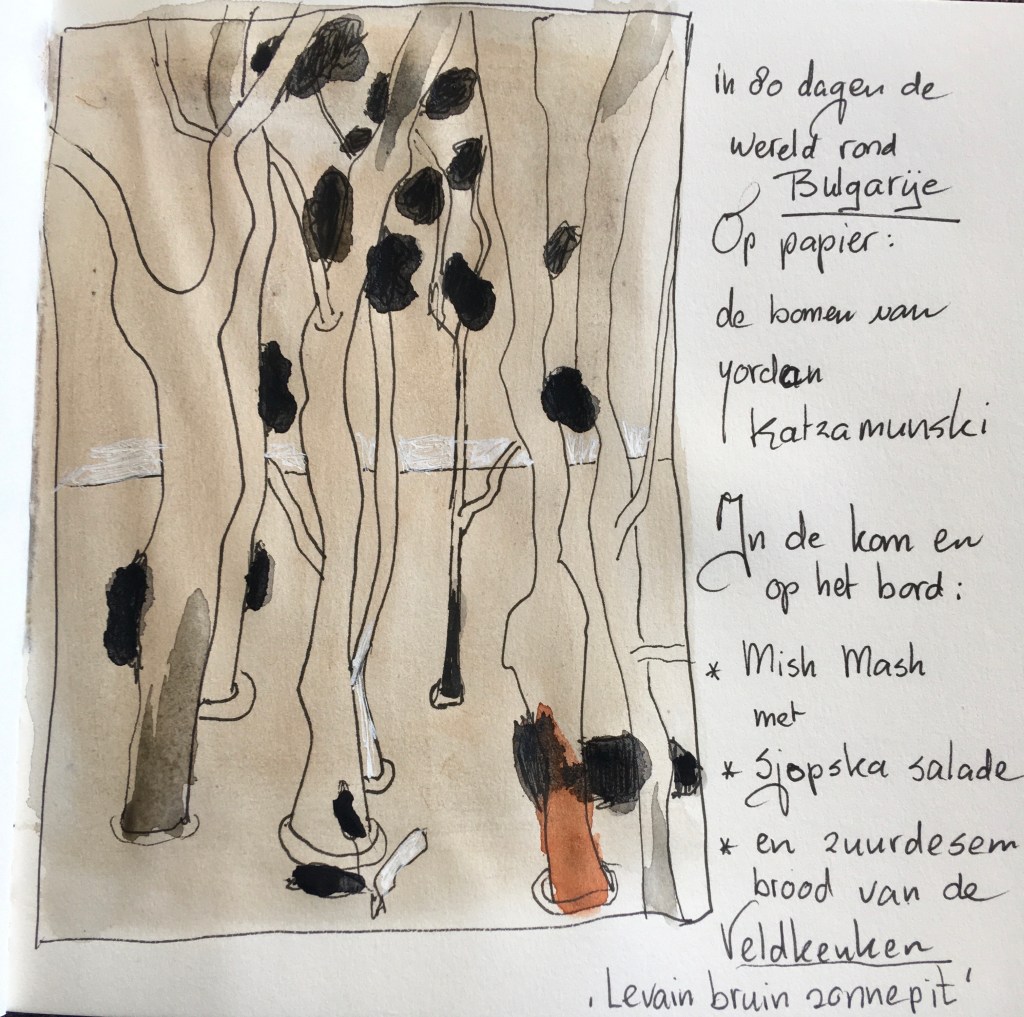 in 80 dagen de
wereld rond
Bulgarije
Op papier:
de bomen van
yordan
Katzamunski
In de kom en
op het bord:
* Mish Mash
met
* Sjopska salade
* en zuurdesem
brood van de
Veldkeuken
'Levain bruin zonnepit'